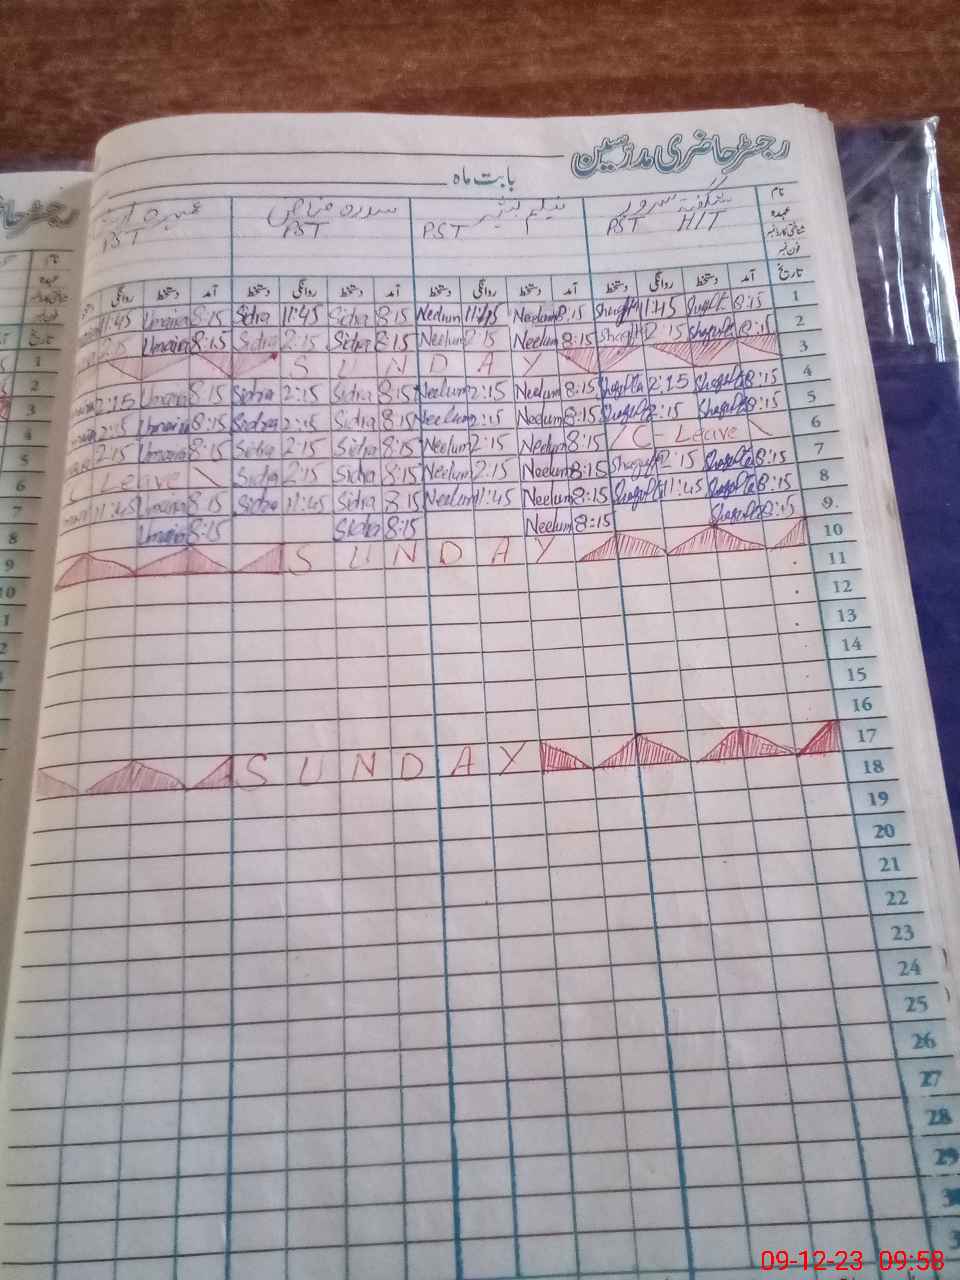 رجسٹر حاضری مدرسین
بابت ماہ
نام شگفتہ سرور نیلم سدرہ
عہدہ PST HIT PST PST PST
شناختی کارڈ نمبر
فون نمبر
تاریخ آمد دستخط روانگی دستخط آمد دستخط روانگی دستخط آمد دستخط روانگی دستخط آمد دستخط روانگی
11:45 Umaira 8:15 Sidra 11:45 Sidra 8:15 Neelum 11:45 Neelum 8:15 11:45 8:15 1
2:15 Umaira 8:15 Sidra 2:15 Sidra 8:15 Neelum 2:15 Neelum 8:15 2:15 8:15 2
SUNDAY 3
2:15 Umaira 8:15 Sidra 2:15 Sidra 8:15 Neelum 2:15 Neelum 8:15 Shagufta 2:15 Shagufta 8:15 4
2:15 Umaira 8:15 Sidra 2:15 Sidra 8:15 Neelum 2:15 Neelum 8:15 Shagufta 2:15 Shagufta 8:15 5
2:15 Umaira 8:15 Sidra 2:15 Sidra 8:15 Neelum 2:15 Neelum 8:15 C-Leave 6
Leave Sidra 2:15 Sidra 8:15 Neelum 2:15 Neelum 8:15 Shagufta 2:15 Shagufta 8:15 7
11:45 Umaira 8:15 Sidra 11:45 Sidra 8:15 Neelum 11:45 Neelum 8:15 Shagufta 11:45 Shagufta 8:15 8
Umaira 8:15 Sidra 8:15 Neelum 8:15 Shagufta 8:15 9
SUNDAY 10
11
12
13
14
15
16
SUNDAY 17
18
19
20
21
22
23
24
25
26
27
28
29
09-12-23 09:58